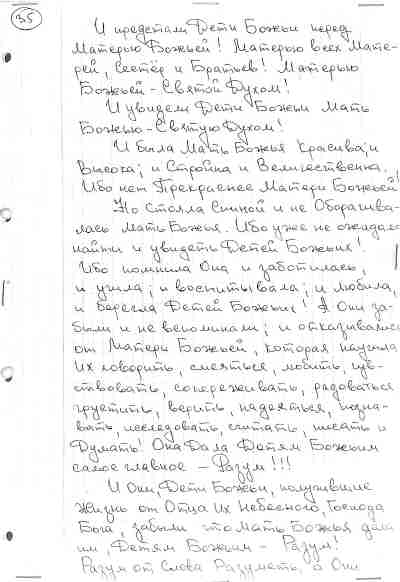 35
И предстали Дети Божьи перед
Матерью Божьей! Матерью всех Мате-
рей, Сестёр и Братьев! Матерью
Божьей - Святой Духом!
И увидели Дети Божьи Мать
Божью - Святую Духом!
И была Мать Божья Красива; и
Высока; и Стройна и Величественна.
Ибо нет Прекраснее Матери Божьей!
Но Стояла Спиной и не Оборачива-
лась Мать Божья. Ибо уже не ожидала
найти и увидеть Детей Божьих!
Ибо помнила Она и заботилась,
и учила; и воспитывала; и любила,
и берегла Детей Божьих! А Они за-
были и не вспоминали; и отказывались
от Матери Божьей, которая научила
Их говорить, смеяться, любить, чув-
ствовать, сопереживать, радоваться
грустить, верить, надеяться, позна-
вать, исследовать, считать, писать и
Думать! Она Дала Детям Божьим
самое главное - Разум!!!
И Они, Дети Божьи, получившие
Жизнь от Отца Их Небесного, Господа
Бога, забыли что Мать Божья дала
им, Детям Божьим - Разум!
Разум от Слова Разуметь, а Они